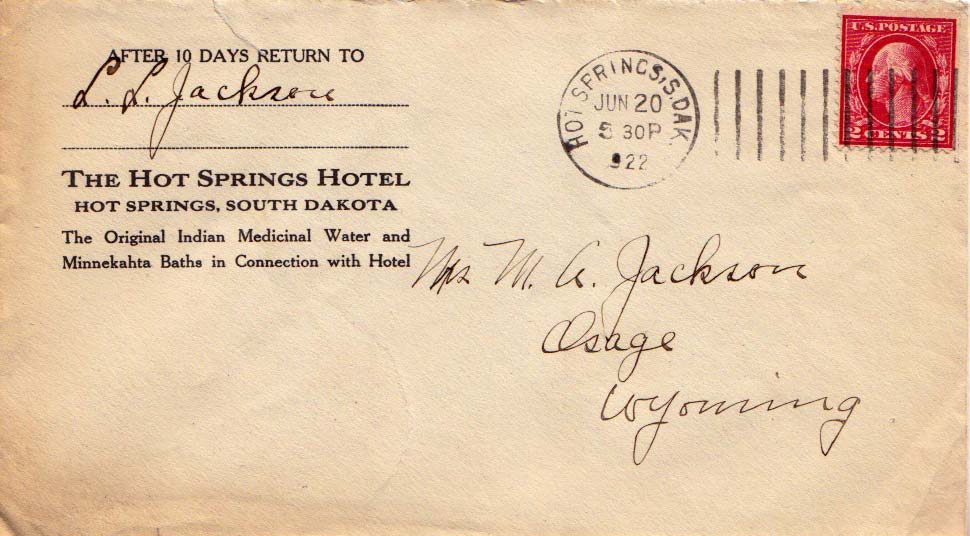 AFTER 10 DAYS RETURN TO
L. L. Jackson
THE HOT SPRINGS HOTEL
HOT SPRINGS, SOUTH DAKOTA
The Original Indian Medicinal Water and
Minnekahta Baths in Connection with Hotel
HOT SPRINGS, S. DAK.
JUN 20
5 30P
922
U.S. POSTAGE
2 CENTS 2
Mrs M. A. Jackson
Osage
Wyoming